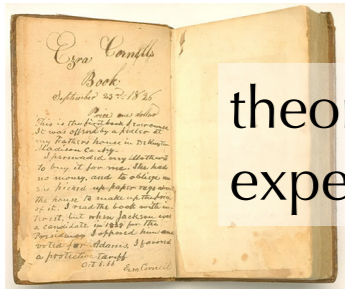 Ezra Cornell's
Book
September 25th 1826
Price one dollar
This is the first book I owned
It was offered by a pedler at
my fathers house in DeRuyter
Madison County.
I persuaded my Mother
to buy it for me. She had
no money, and to oblige me
she picked up paper rags about
the house to make up the
of it. I read the book with in-
terest, but when Jackson was
a candidate in 1828 for the
Presidency I opposed him and
voted for Adams, I favored
a protective tariff
Ezra Cornell
theo
expe